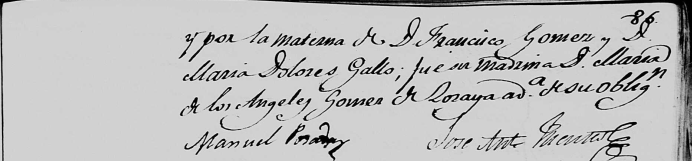 86.
y por la materna de D Francisco Gomez y D.
Maria Dolores Gallo; fue su madrina D. Maria
de los Angeles Gomez de Loraya ad.ª de su oblig.n
Manuel Posada Jose Ant. Fuentes